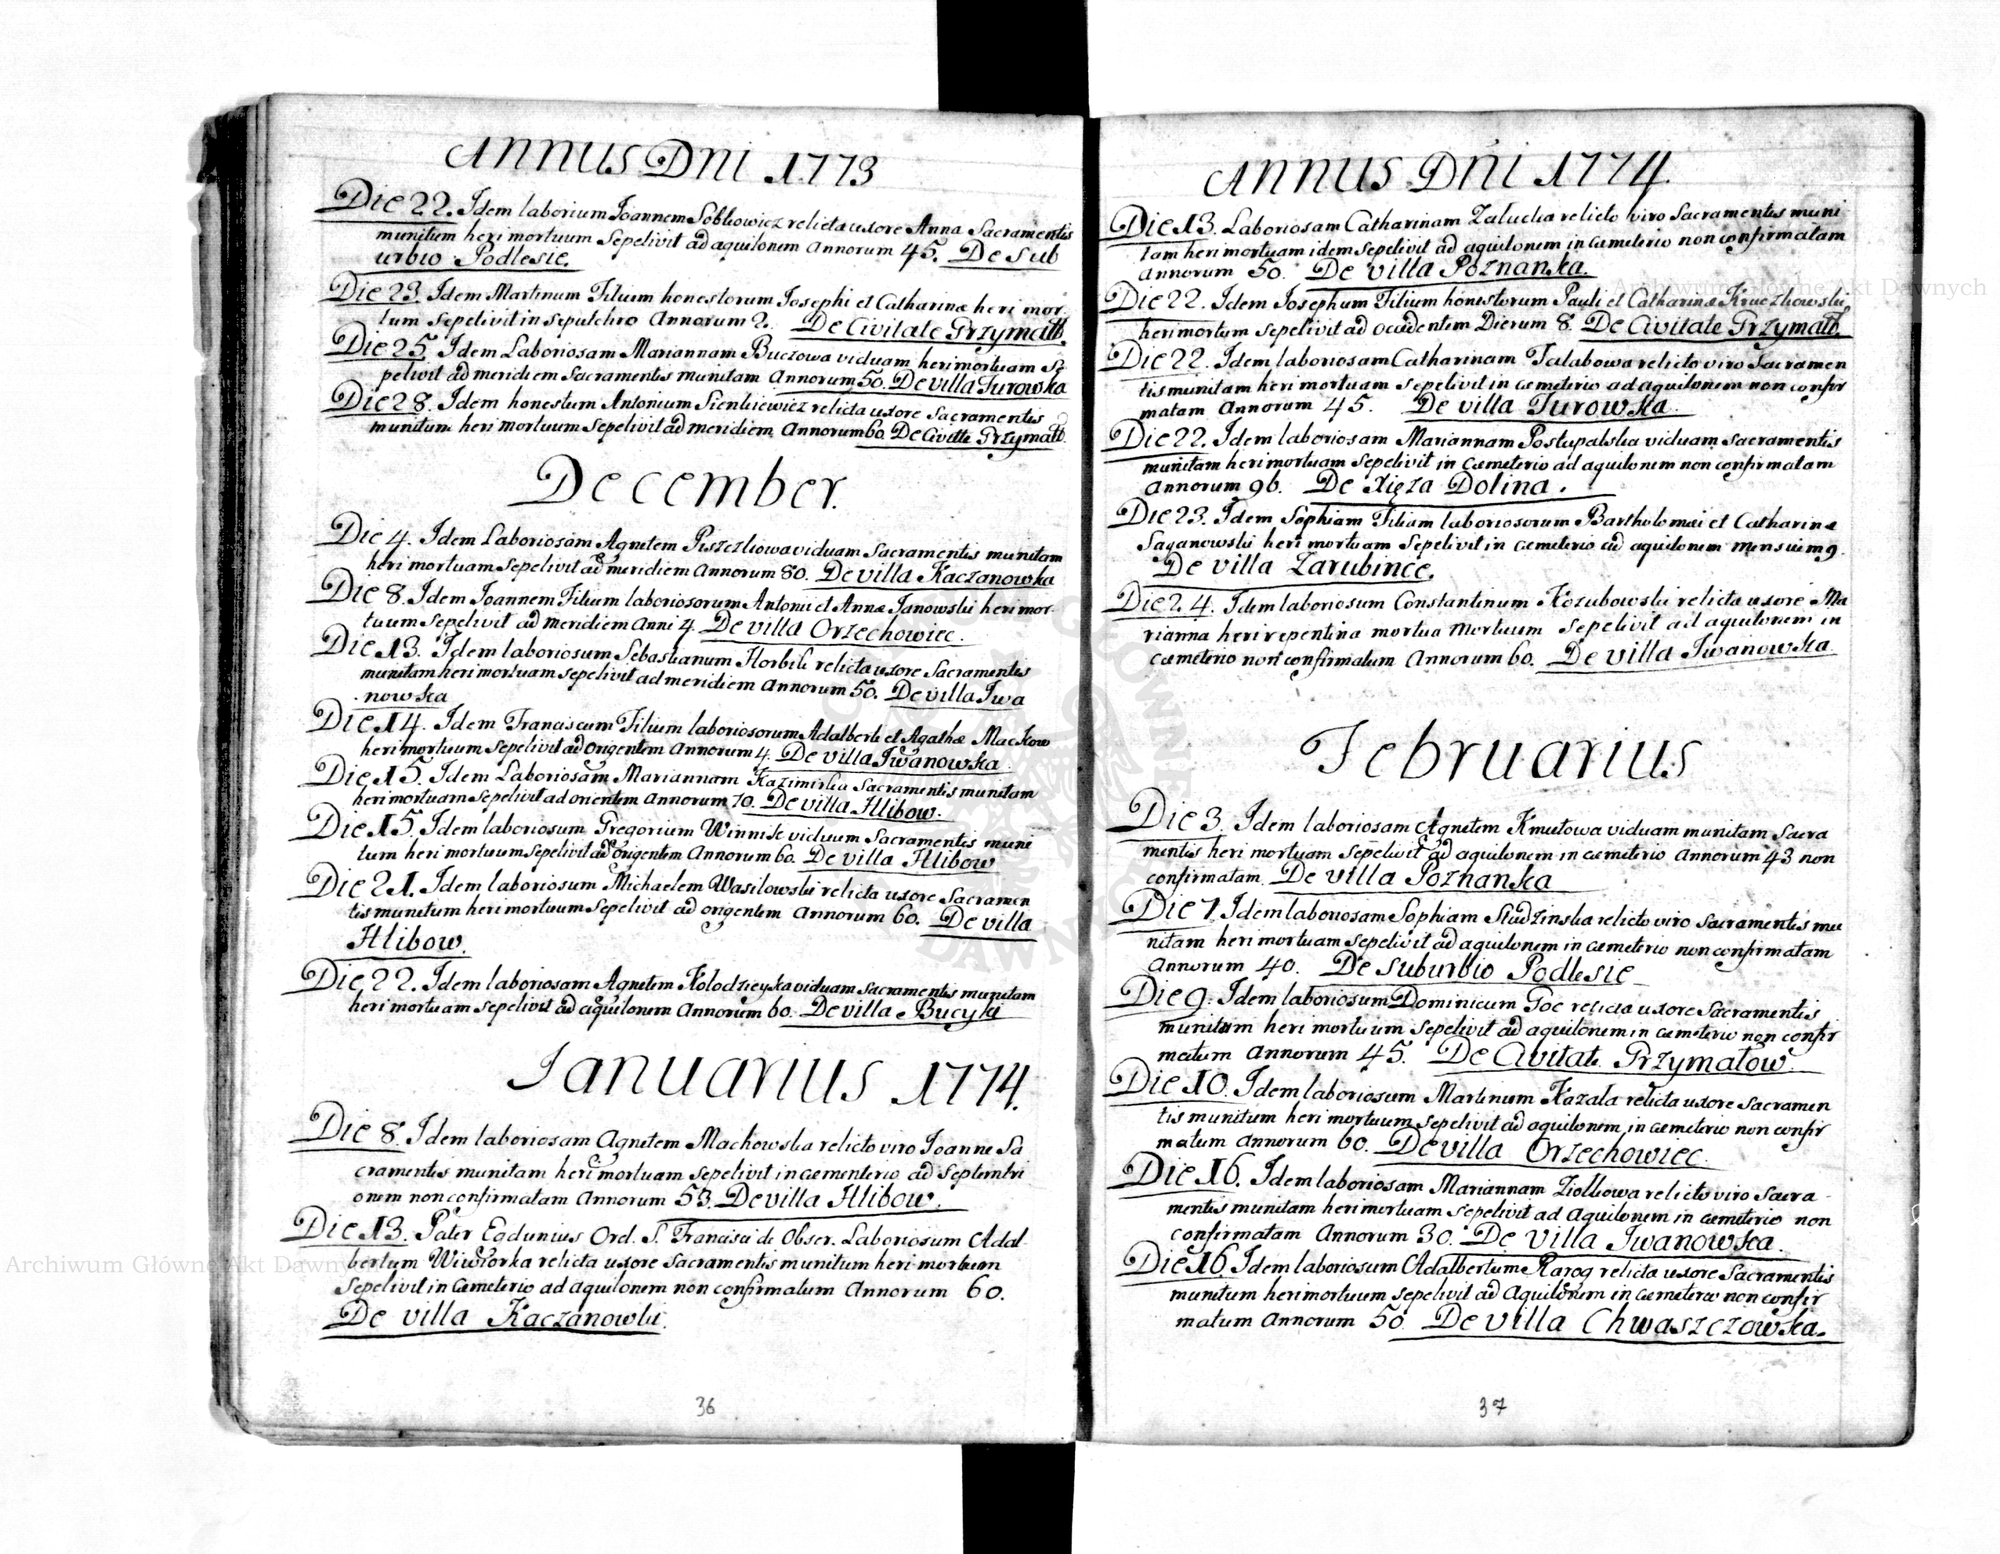 ANNUS DNI 1773
Die 22. Idem laborium Joannem Sobkowicz relicta uxore Anna Sacramentis
munitum heri mortuum Sepelivit ad aquilonem annorum 45. De Sub
urbio Podlesie.
Die 23. Idem Martinum Filium honestorum Josephi et Catharinæ heri mor
tum Sepelivit in sepulchro Annorum 2. De Civitate Grzymałł.
Die 25. Idem Laboriosam Mariannam Buczowa viduam heri mortuam Se
pelivit ad meridiem Sacramentis munitam Annorum 50. De villa Turowka
Die 28. Idem honestum Antonium Sienkiewicz relicta uxore Sacramentis
munitum heri mortuum Sepelivit ad meridiem Annorum 60. De Civitte Grzymałł.
December.
Die 4. Idem Laboriosam Agnetem Piszczkowa viduam Sacramentis munitam
heri mortuam Sepelivit ad meridiem Annorum 80. De villa Kaczanowka
Die 8. Idem Joannem Filium laboriosorum Antonii et Annæ Janowski heri mor
tuum Sepelivit ad meridiem Anni 4. De villa Orzechowiec.
Die 13. Idem laboriosum Sebastianum Horbik relicta uxore Sacramentis
munitam heri mortuam sepelivit ad meridiem Annorum 50. De villa Iwa
nowka
Die 14. Idem Franciscum Filium laboriosorum Adalberti et Agathæ Mackow
heri mortuum Sepelivit ad origentem Annorum 4. De villa Iwanowka
Die 15. Idem Laboriosam Mariannam Kazimirska Sacramentis munitam
heri mortuam Sepelivit ad orientem Annorum 70. De villa Hlibow.
Die 15. Idem laboriosum Gregorium Winnik viduum Sacramentis muni
tum heri mortuum Sepelivit ad origentem Annorum 60. De villa Hlibow
Die 21. Idem laboriosum Michaelem Wasilowski relicta uxore Sacramen
tis munitum heri mortuum Sepelivit ad origentem Annorum 60. De villa
Hlibow.
Die 22. Idem laboriosam Agnetem Kolodzieyska viduam Sacramentis munitam
heri mortuam sepelivit ad aquilonem Annorum 60. De villa Bucyki
Ianuarius 1774.
Die 8. Idem laboriosam Agnetem Mackowska relicto viro Joanne Sa
cramentis munitam heri mortuam sepelivit in cæmenterio ad Septemtri
onem non confirmatam Annorum 53. De villa Hlibow.
Die 13. Pater Egdunius Ord. S. Francisci de Obser. Laboriosum Adal
bertum Wiwiorka relicta uxore Sacramentis munitum heri mortuum
Sepelivit in Cæmeterio ad aquilonem non confirmatum Annorum 60.
De villa Kaczanowki.
36
ANNUS DNI 1774.
Die 13. Laboriosam Catharinam Zalucka relicto viro Sacramentis muni
tam heri mortuam idem Sepelivit ad aquilonem in cæmeterio non confirmatam
Annorum 50. De villa Poznanka.
Die 22. Idem Josephum Filium honestorum Pauli et Catharinæ Kruczkowski
heri mortum Sepelivit ad occidentem Dierum 8. De Civitate Grzymałł.
Die 22. Idem laboriosam Catharinam Talabowa relicto viro Sacramen
tis munitam heri mortuam Sepelivit in cæmeterio ad aquilonem non confir
matam Annorum 45. De villa Turowka.
Die 22. Idem laboriosam Mariannam Postupalska viduam Sacramentis
munitam heri mortuam Sepelivit in Cæmeterio ad aquilonem non confirmatam
Annorum 96. De Xięza Dolina.
Die 23. Idem Sophiam Filiam laboriosorum Bartholomæi et Catharinæ
Saganowski heri mortuam Sepelivit in cæmeterio ad aquilonem mensium 9.
De villa Zarubince.
Die 24. Idem laboriosum Constantinum Kozubowski relicta uxore Ma
rianna heri repentina mortua Mortuum Sepelivit ad aquilonem in
Cæmeterio non confirmatum Annorum 60. De villa Iwanowka
Februarius
Die 3. Idem laboriosam Agnetem Kmutowa viduam munitam Sacra
mentis heri mortuam Sepelivit ad aquilonem in cæmeterio Annorum 43 non
confirmatam. De villa Poznanka
Die 7. Idem laboriosam Sophiam Studzinska relicto viro Sacramentis mu
nitam heri mortuam Sepelivit ad aquilonem in cæmeterio non confirmatam
Annorum 40. De suburbio Podlesie
Die 9. Idem laboriosum Dominicum Goc relicta uxore Sacramentis
munitum heri mortuum Sepelivit ad aquilonem in cæmeterio non confir
matum Annorum 45. De Civitate Grzymałow.
Die 10. Idem laboriosum Martinum Kazala relicta uxore Sacramen
tis munitum heri mortuum Sepelivit ad aquilonem in cæmeterio non confir
matum Annorum 60. De villa Orzechowiec.
Die 16. Idem laboriosam Mariannam Ziolkowa relicto viro Sacra
mentis munitam heri mortuam Sepelivit ad Aquilonem in cæmeterio non
confirmatam Annorum 30. De villa Iwanowka.
Die 16. Idem laboriosum Adalbertum Rarog relicta uxore Sacramentis
munitum heri mortuum Sepelivit ad Aquilonem in cæmeterio non confir
matum Annorum 50. De villa Chwaszczowka.
37
Archiwum Główne Akt Dawnych
Archiwum Główne Akt Dawnych